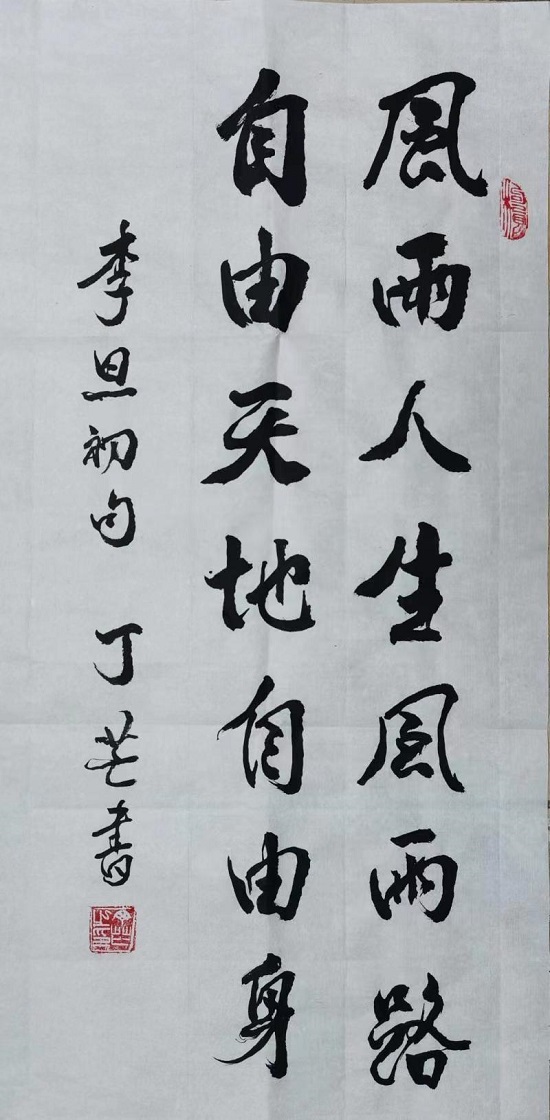 風雨人生風雨路
自由天地自由身
李旦初句 丁芒書